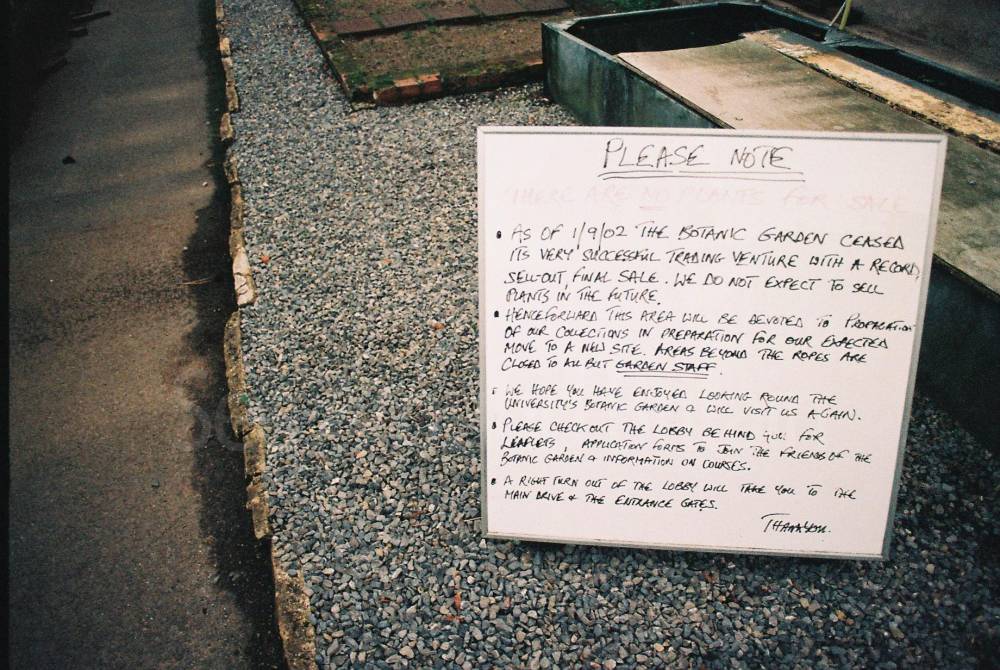 PLEASE NOTE
THERE ARE NO PLANTS FOR SALE
• AS OF 1/9/02 THE BOTANIC GARDEN CEASED
ITS VERY SUCCESSFUL TRADING VENTURE WITH A RECORD,
SELL-OUT, FINAL SALE. WE DO NOT EXPECT TO SELL
PLANTS IN THE FUTURE.
• HENCEFORWARD THIS AREA WILL BE DEVOTED TO PROPAGATION
OF OUR COLLECTIONS IN PREPARATION FOR OUR EXPECTED
MOVE TO A NEW SITE. AREAS BEYOND THE ROPES ARE
CLOSED TO ALL BUT GARDEN STAFF.
• WE HOPE YOU HAVE ENJOYED LOOKING ROUND THE
UNIVERSITY'S BOTANIC GARDEN & WILL VISIT US AGAIN.
• PLEASE CHECK OUT THE LOBBY BEHIND YOU FOR
LEAFLETS, APPLICATION FORMS TO JOIN THE FRIENDS OF THE
BOTANIC GARDEN & INFORMATION ON COURSES.
• A RIGHT TURN OUT OF THE LOBBY WILL TAKE YOU TO THE
MAIN DRIVE & THE ENTRANCE GATES.
THANKYOU.